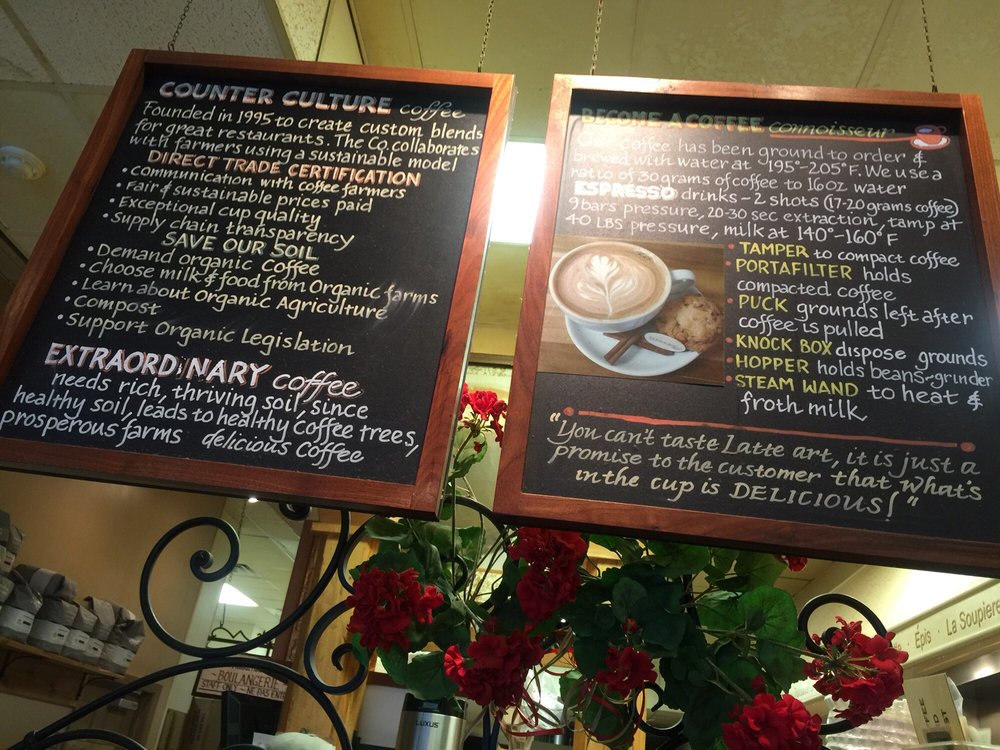 COUNTER CULTURE coffee
Founded in 1995 to create custom blends
for great restaurants. The Co. collaborates
with farmers using a sustainable model
DIRECT TRADE CERTIFICATION
• Communication with coffee farmers
• Fair & sustainable prices paid
• Exceptional cup quality
• Supply chain transparency
SAVE OUR SOIL
• Demand organic Coffee
• Choose milk & food from Organic farms
• Learn about Organic Agriculture
• Compost
• Support Organic Legislation
EXTRAORDINARY coffee
needs rich, thriving soil, since
healthy soil, leads to healthy coffee trees,
prosperous farms delicious Coffee
BECOME A COFFEE connoisseur
Our coffee has been ground to order &
brewed with water at 195°-205°F. We use a
ratio of 30 grams of coffee to 16oz water
ESPRESSO drinks - 2 shots (17-20 grams coffee)
9 bars pressure, 20-30 sec extraction, tamp at
40 LBS pressure, milk at 140°-160°F
• TAMPER to compact coffee
• PORTAFILTER holds
compacted coffee
• PUCK grounds left after
coffee is pulled
• KNOCK BOX dispose grounds
• HOPPER holds beans-grinder
• STEAM WAND to heat &
froth milk
"You can't taste Latte art, it is just a
promise to the customer that what's
in the cup is DELICIOUS!"
Épis · La Soupière
BOULANGERIE
STAFF ONLY ~ NE PAS ENTR
LUXUS